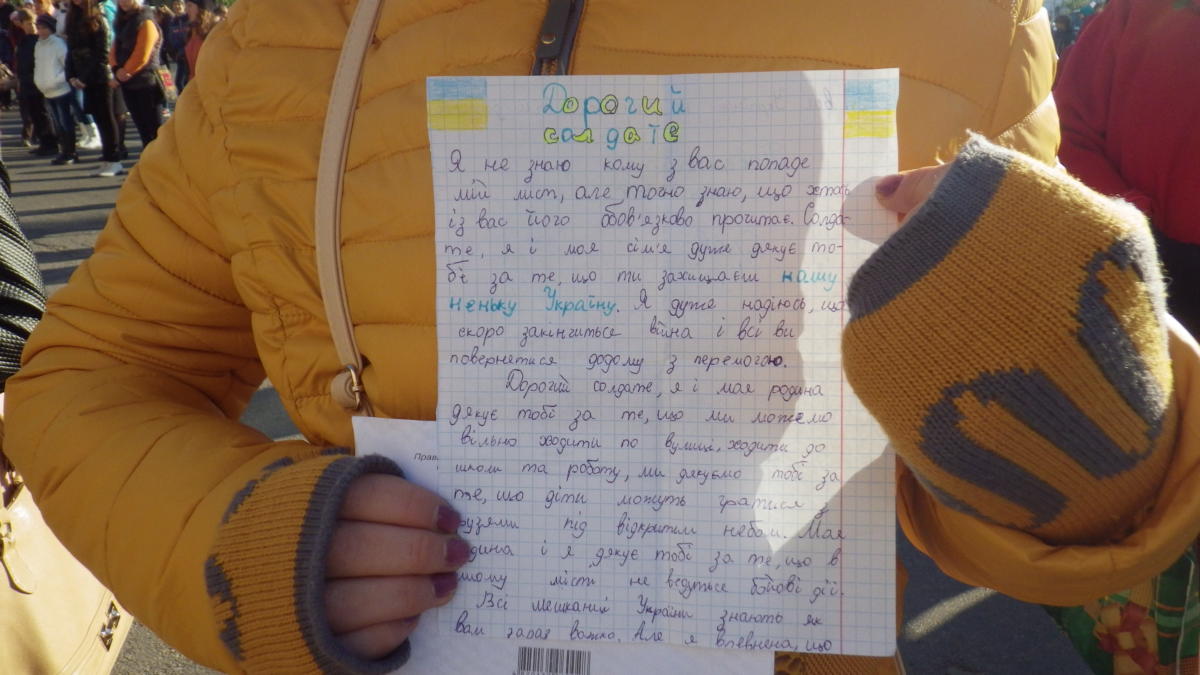 Дорогий
солдатє
Я не знаю кому з вас попаде
мій лист, але точно знаю, що хтось
із вас його обов'язково прочитає. Солда-
те, я і моя сім'я дуже дякує то-
бі за те, що ти захищаєш нашу
неньку Україну. Я дуже надіюсь, що
скоро закінчиться війна і всі ви
повернетися додому з перемогою.
Дорогий солдате, я і моя родина
дякує тобі за те, що ми можемо
вільно ходити по вулиці, ходити до
школи та роботу, ми дякуємо тобі за
те, що діти можуть гратися з
рузями під відкритим небом. Моя
дина і я дякує тобі за те, що в
шому місті не ведуться бойові дії.
Всі мешканці України знають як
вам зараз важко. Але я впевнена, що
Прав